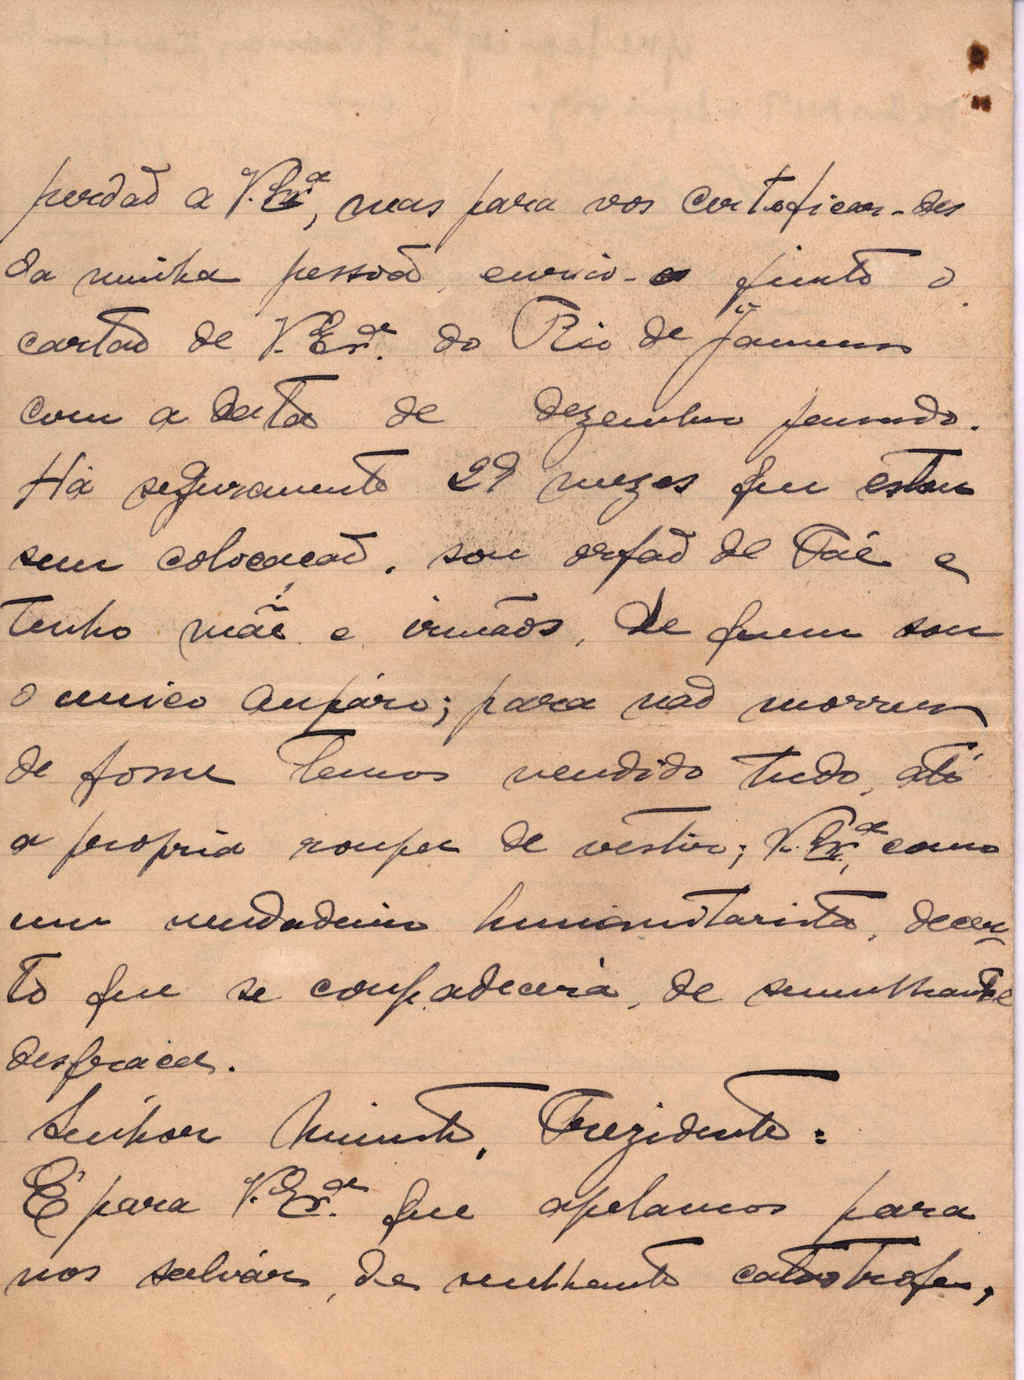 perdão a V. Ex.ª, mas para vos certeficar-des
da minha pessoa, envio-o junto o
cartão de V. Ex.ª do Rio de Janeiro
com a data de dezembro passado.
Há seguramente 29 mezes que estou
sem colocação, sou orfão de Pai e
tenho mãe e irmãos, de quem sou
o unico amparo; para não morrer
de fome temos vendido tudo, até
a propria roupa de vestir; V. Ex.ª, como
um verdadeiro humanitarista, decer-
to que se compadecerá, de semilhante
desgraça.
Senhor Ministro, Prezidente:
É para V. Ex.ª que apelamos para
nos salvár, de semlhante catastrofe,